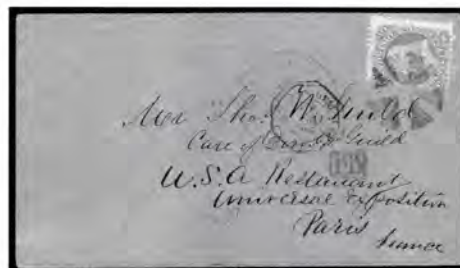 Mrs Thos. W. Guild
Care of Guild
U.S.A Restaurant
Universal Exposition
Paris
France